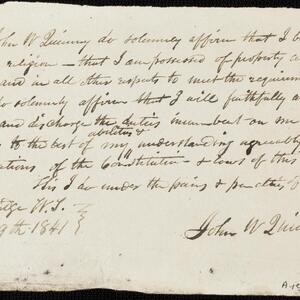 John W Quinney do solemnly affirm that I b
religion – that I am possessed of property a
and in all other respects to meet the requirem
do solemnly affirm that I will faithfully a
and discharge the duties incumbent on me
abilities &
to the best of my understanding agreeably
ations of the Constitution & laws of this
This I do under the pains & penalties of
W.T.
9th 1841
John W Quin